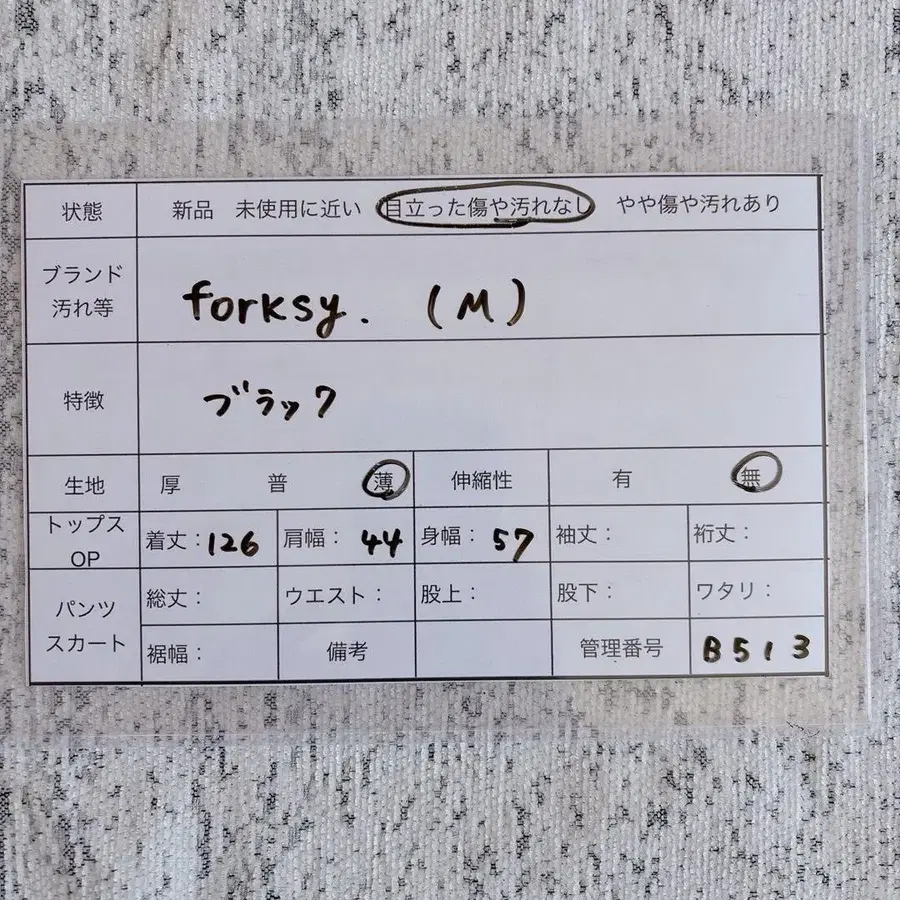 状態 新品 未使用に近い 目立った傷や汚れなし やや傷や汚れあり
ブランド
汚れ等
forksy. (M)
特徴 ブラック
生地 厚 普 薄 伸縮性 有 無
トップス
OP
着丈：126 肩幅：44 身幅：57 袖丈： 裄丈：
パンツ
スカート
総丈： ウエスト： 股上： 股下： ワタリ：
裾幅： 備考 管理番号 B513